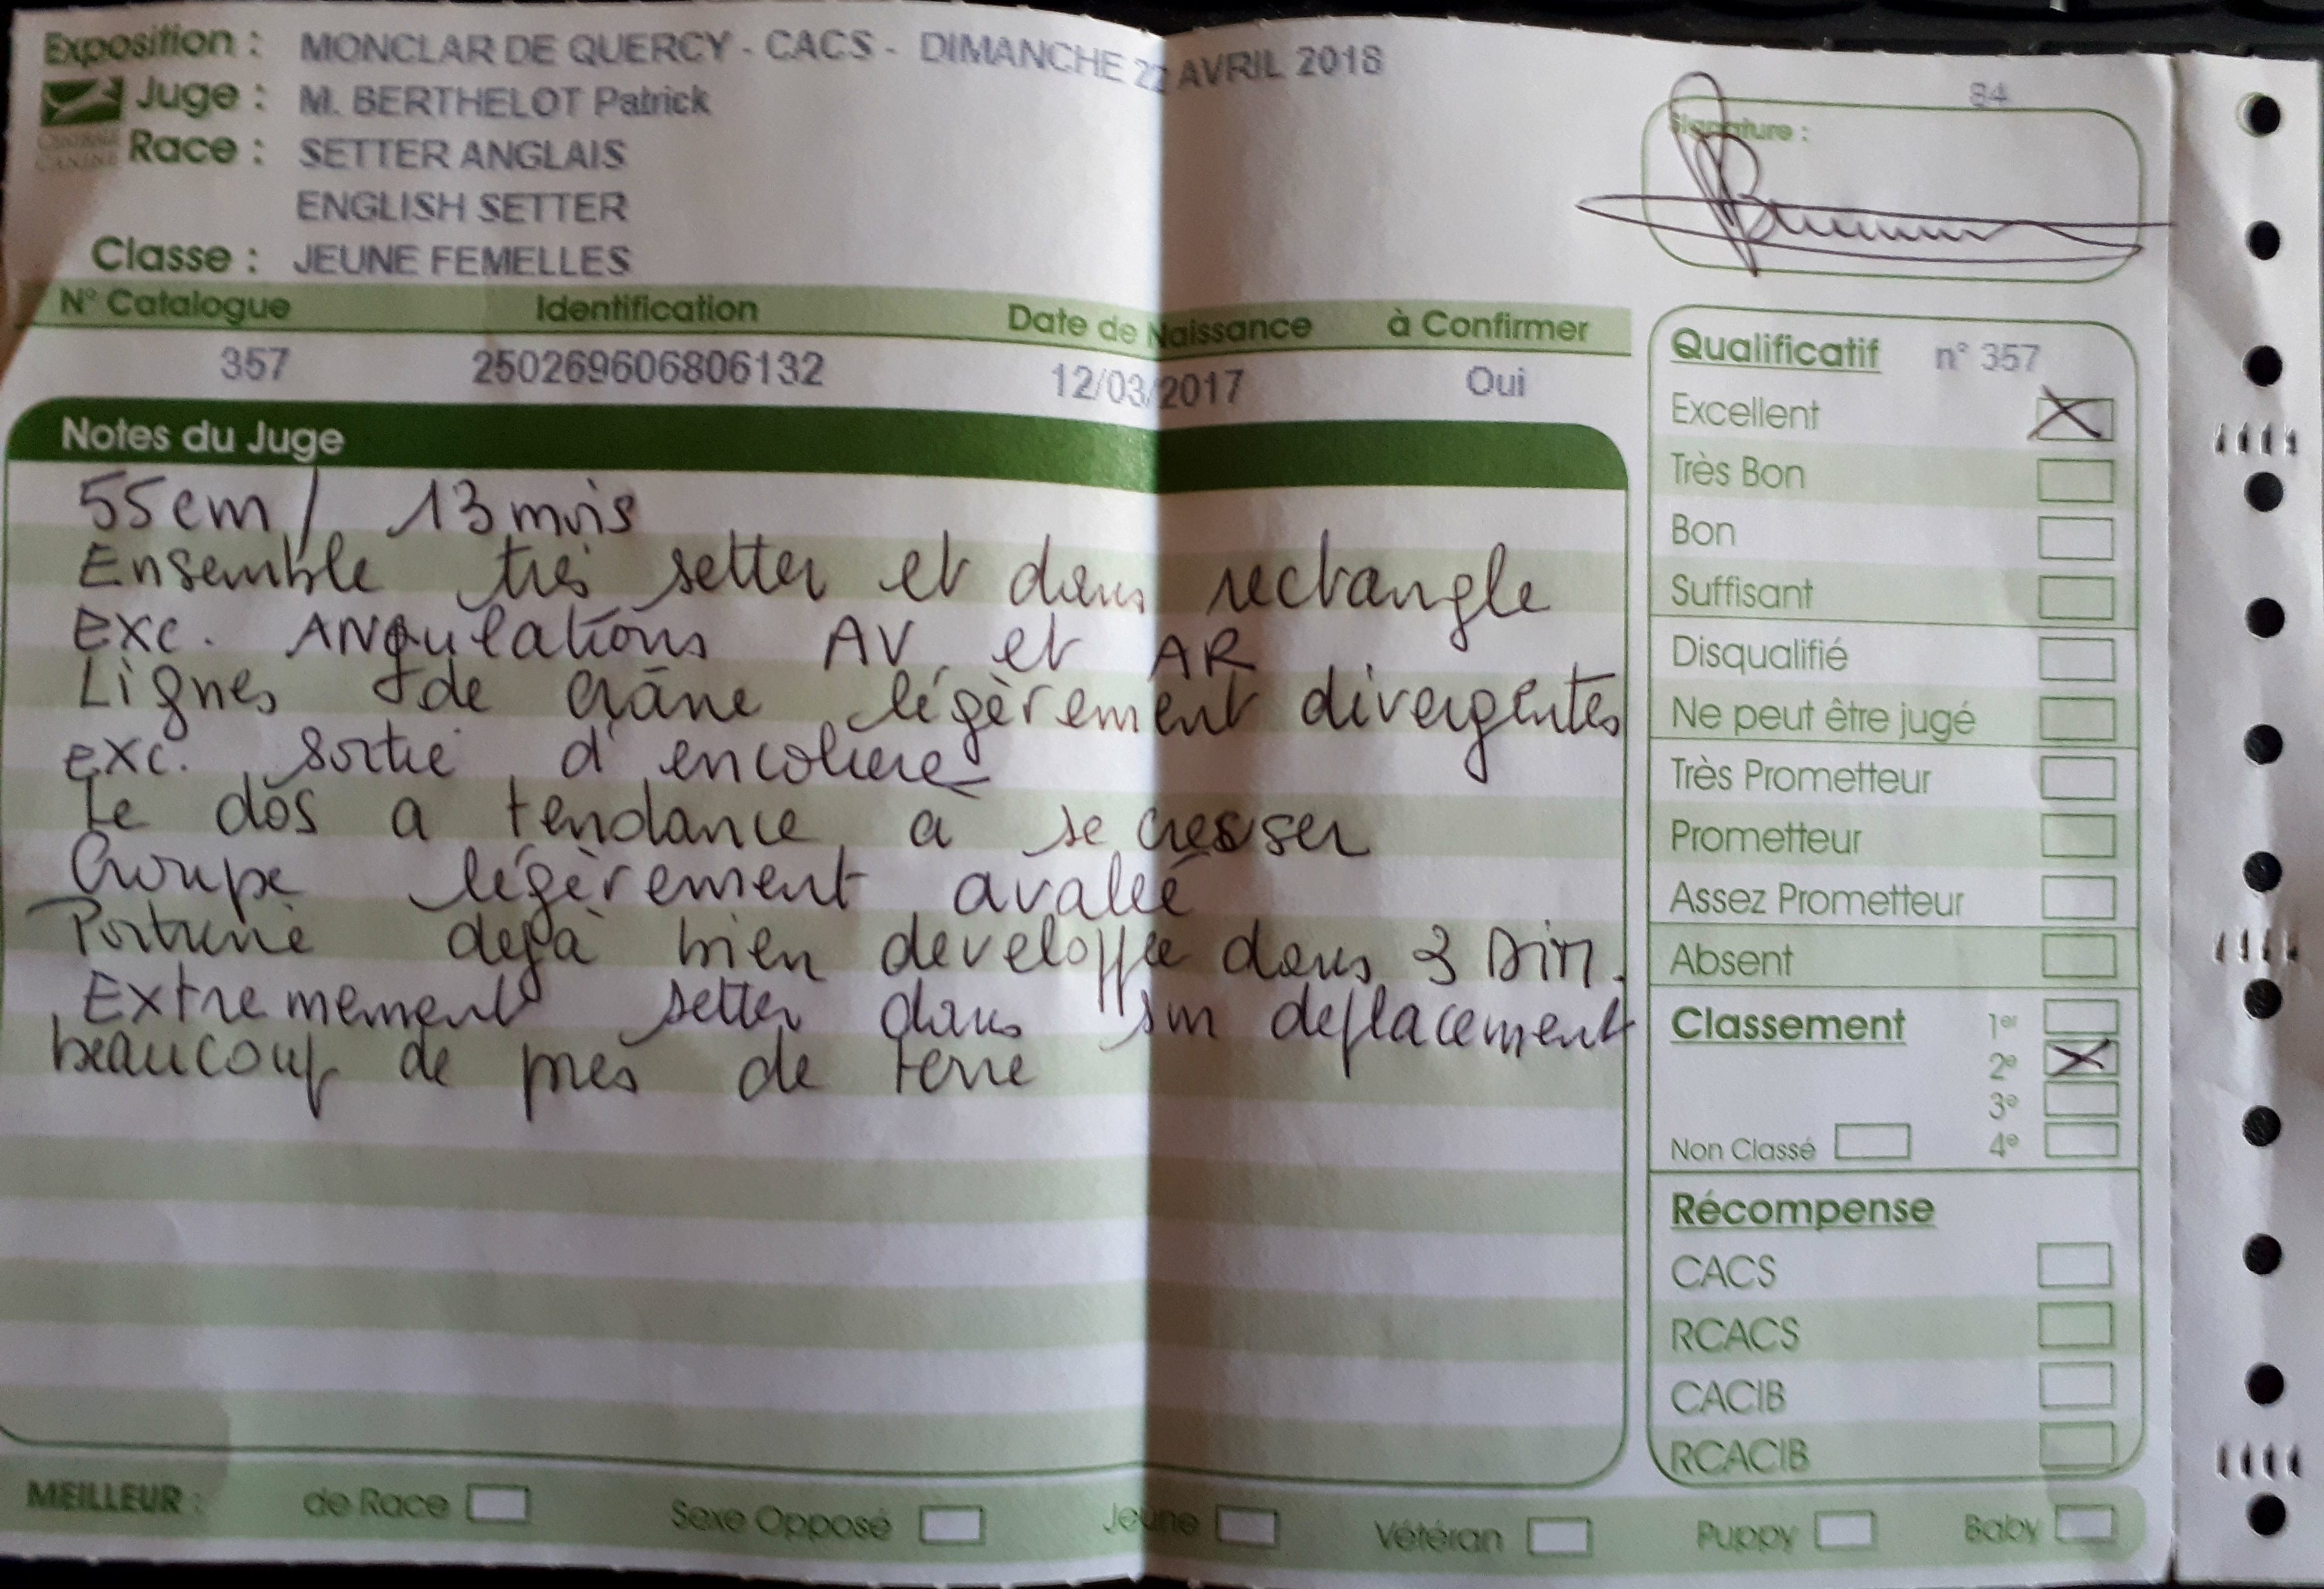 Exposition : MONCLAR DE QUERCY - CACS - DIMANCHE 22 AVRIL 2018
Juge : M. BERTHELOT Patrick
CENTRALE CANINE
Race : SETTER ANGLAIS
ENGLISH SETTER
Classe : JEUNE FEMELLES
84
Signature :
N° Catalogue Identification Date de Naissance à Confirmer
357 250269606806132 12/03/2017 Oui
Notes du Juge
55cm / 13 mois
Ensemble très setter et dans rectangle
exc. ANgulations AV et AR
Lignes de crâne légèrement divergentes
exc. sortie d'encolure
Le dos a tendance a se creuser
Croupe légèrement avalée
Poitrine dejà bien developpée dans 3 Dim.
Extremement setter dans son deplacement
beaucoup de près de terre
Qualificatif n° 357
Excellent
Très Bon
Bon
Suffisant
Disqualifié
Ne peut être jugé
Très Prometteur
Prometteur
Assez Prometteur
Absent
Classement 1er
2e
3e
Non Classé 4e
Récompense
CACS
RCACS
CACIB
RCACIB
MEILLEUR : de Race Sexe Opposé Jeune Vétéran Puppy Baby